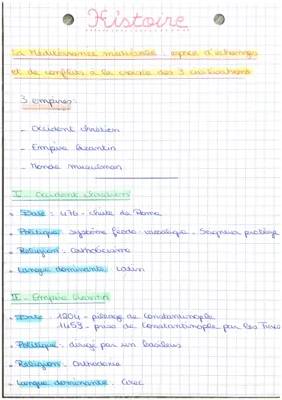 Histoire
La Méditerranée médiévale : espace d'échanges
et de conflits à la croisée des 3 civilisations
3 empires:
- Occident chrétien
- Empire Byzantin
- Monde musulman
I - Occident chrétien
• Date : 476 - chute de Rome
• Politique : système féodo-vassalique. Seigneur protège
• Religion : catholicisme
• Langue dominante : Latin
II - Empire byzantin
• Date : 1204 - pillage de Constantinople
1453 - prise de Constantinople par les Turcs
• Politique : dirigé par un basileus
• Religion : Orthodoxie
• Langue dominante : Grec